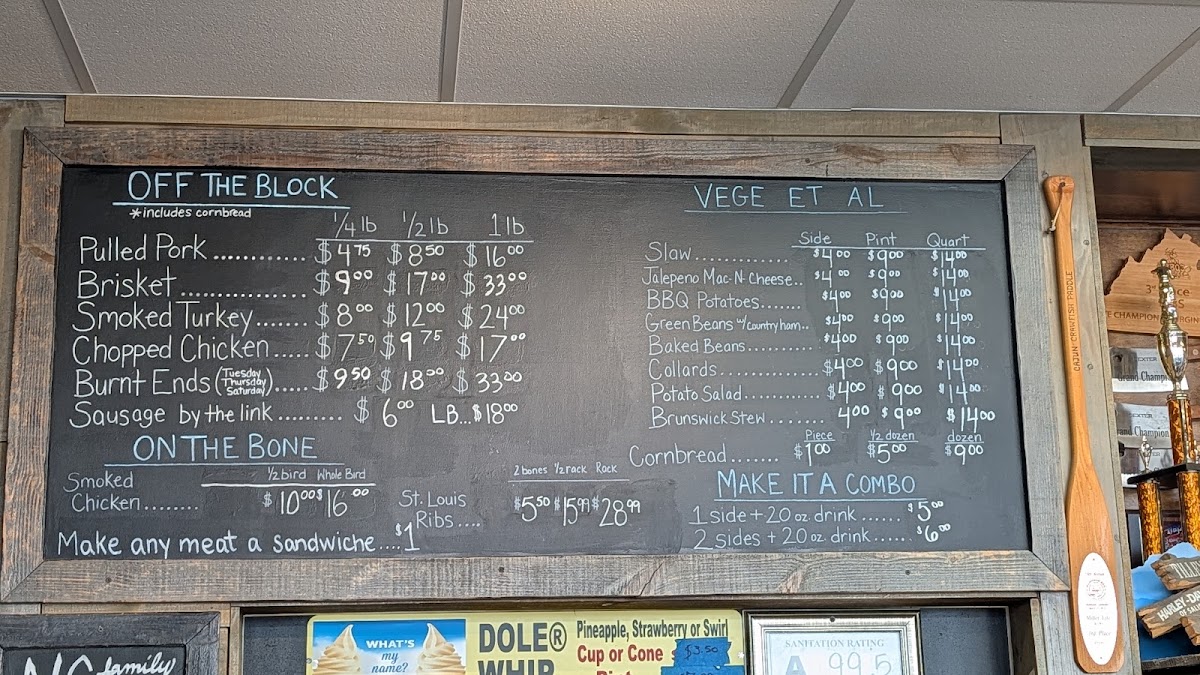 OFF THE BLOCK
*includes cornbread
1/4 lb 1/2 lb 1 lb
Pulled Pork ............ $4 75 $8 50 $16 00
Brisket ............... $9 00 $17 00 $33 00
Smoked Turkey....... $8 00 $12 00 $24 00
Chopped Chicken ..... $7 50 $9 75 $17 00
Burnt Ends (Tuesday Thursday Saturday)..... $9 50 $18 00 $33 00
Sausage by the link ......... $6 00 LB...$18 00
ON THE BONE
1/2 bird Whole Bird
Smoked
Chicken......... $10 00 $16 00
2 bones 1/2 rack Rack
St. Louis
Ribs .... $5 50 $15 99 $28 99
Make any meat a sandwiche....$1
VEGE ET AL
Side Pint Quart
Slaw............. $4 00 $9 00 $14 00
Jalepeno Mac-N-Cheese.. $4 00 $9 00 $14 00
BBQ Potatoes....... $4 00 $9 00 $14 00
Green Beans w/country ham.. $4 00 $9 00 $14 00
Baked Beans.......... $4 00 $9 00 $14 00
Collards.............. $4 00 $9 00 $14 00
Potato Salad............ $4 00 $9 00 $14 00
Brunswick Stew........ 4 00 $9 00 $14 00
Piece 1/2 dozen dozen
Cornbread....... $1 00 $5 00 $9 00
MAKE IT A COMBO
1 side + 20 oz. drink ...... $5 00
2 sides + 20 oz. drink...... $6 00
CAJUN CRAWFISH PADDLE
WHAT'S
my
name?
DOLE® WHIP
Pineapple, Strawberry or Swirl
Cup or Cone
$3.50
SANITATION RATING
A 99.5
NC family
Grand Champi
Grand Champion
HARLEY-DA